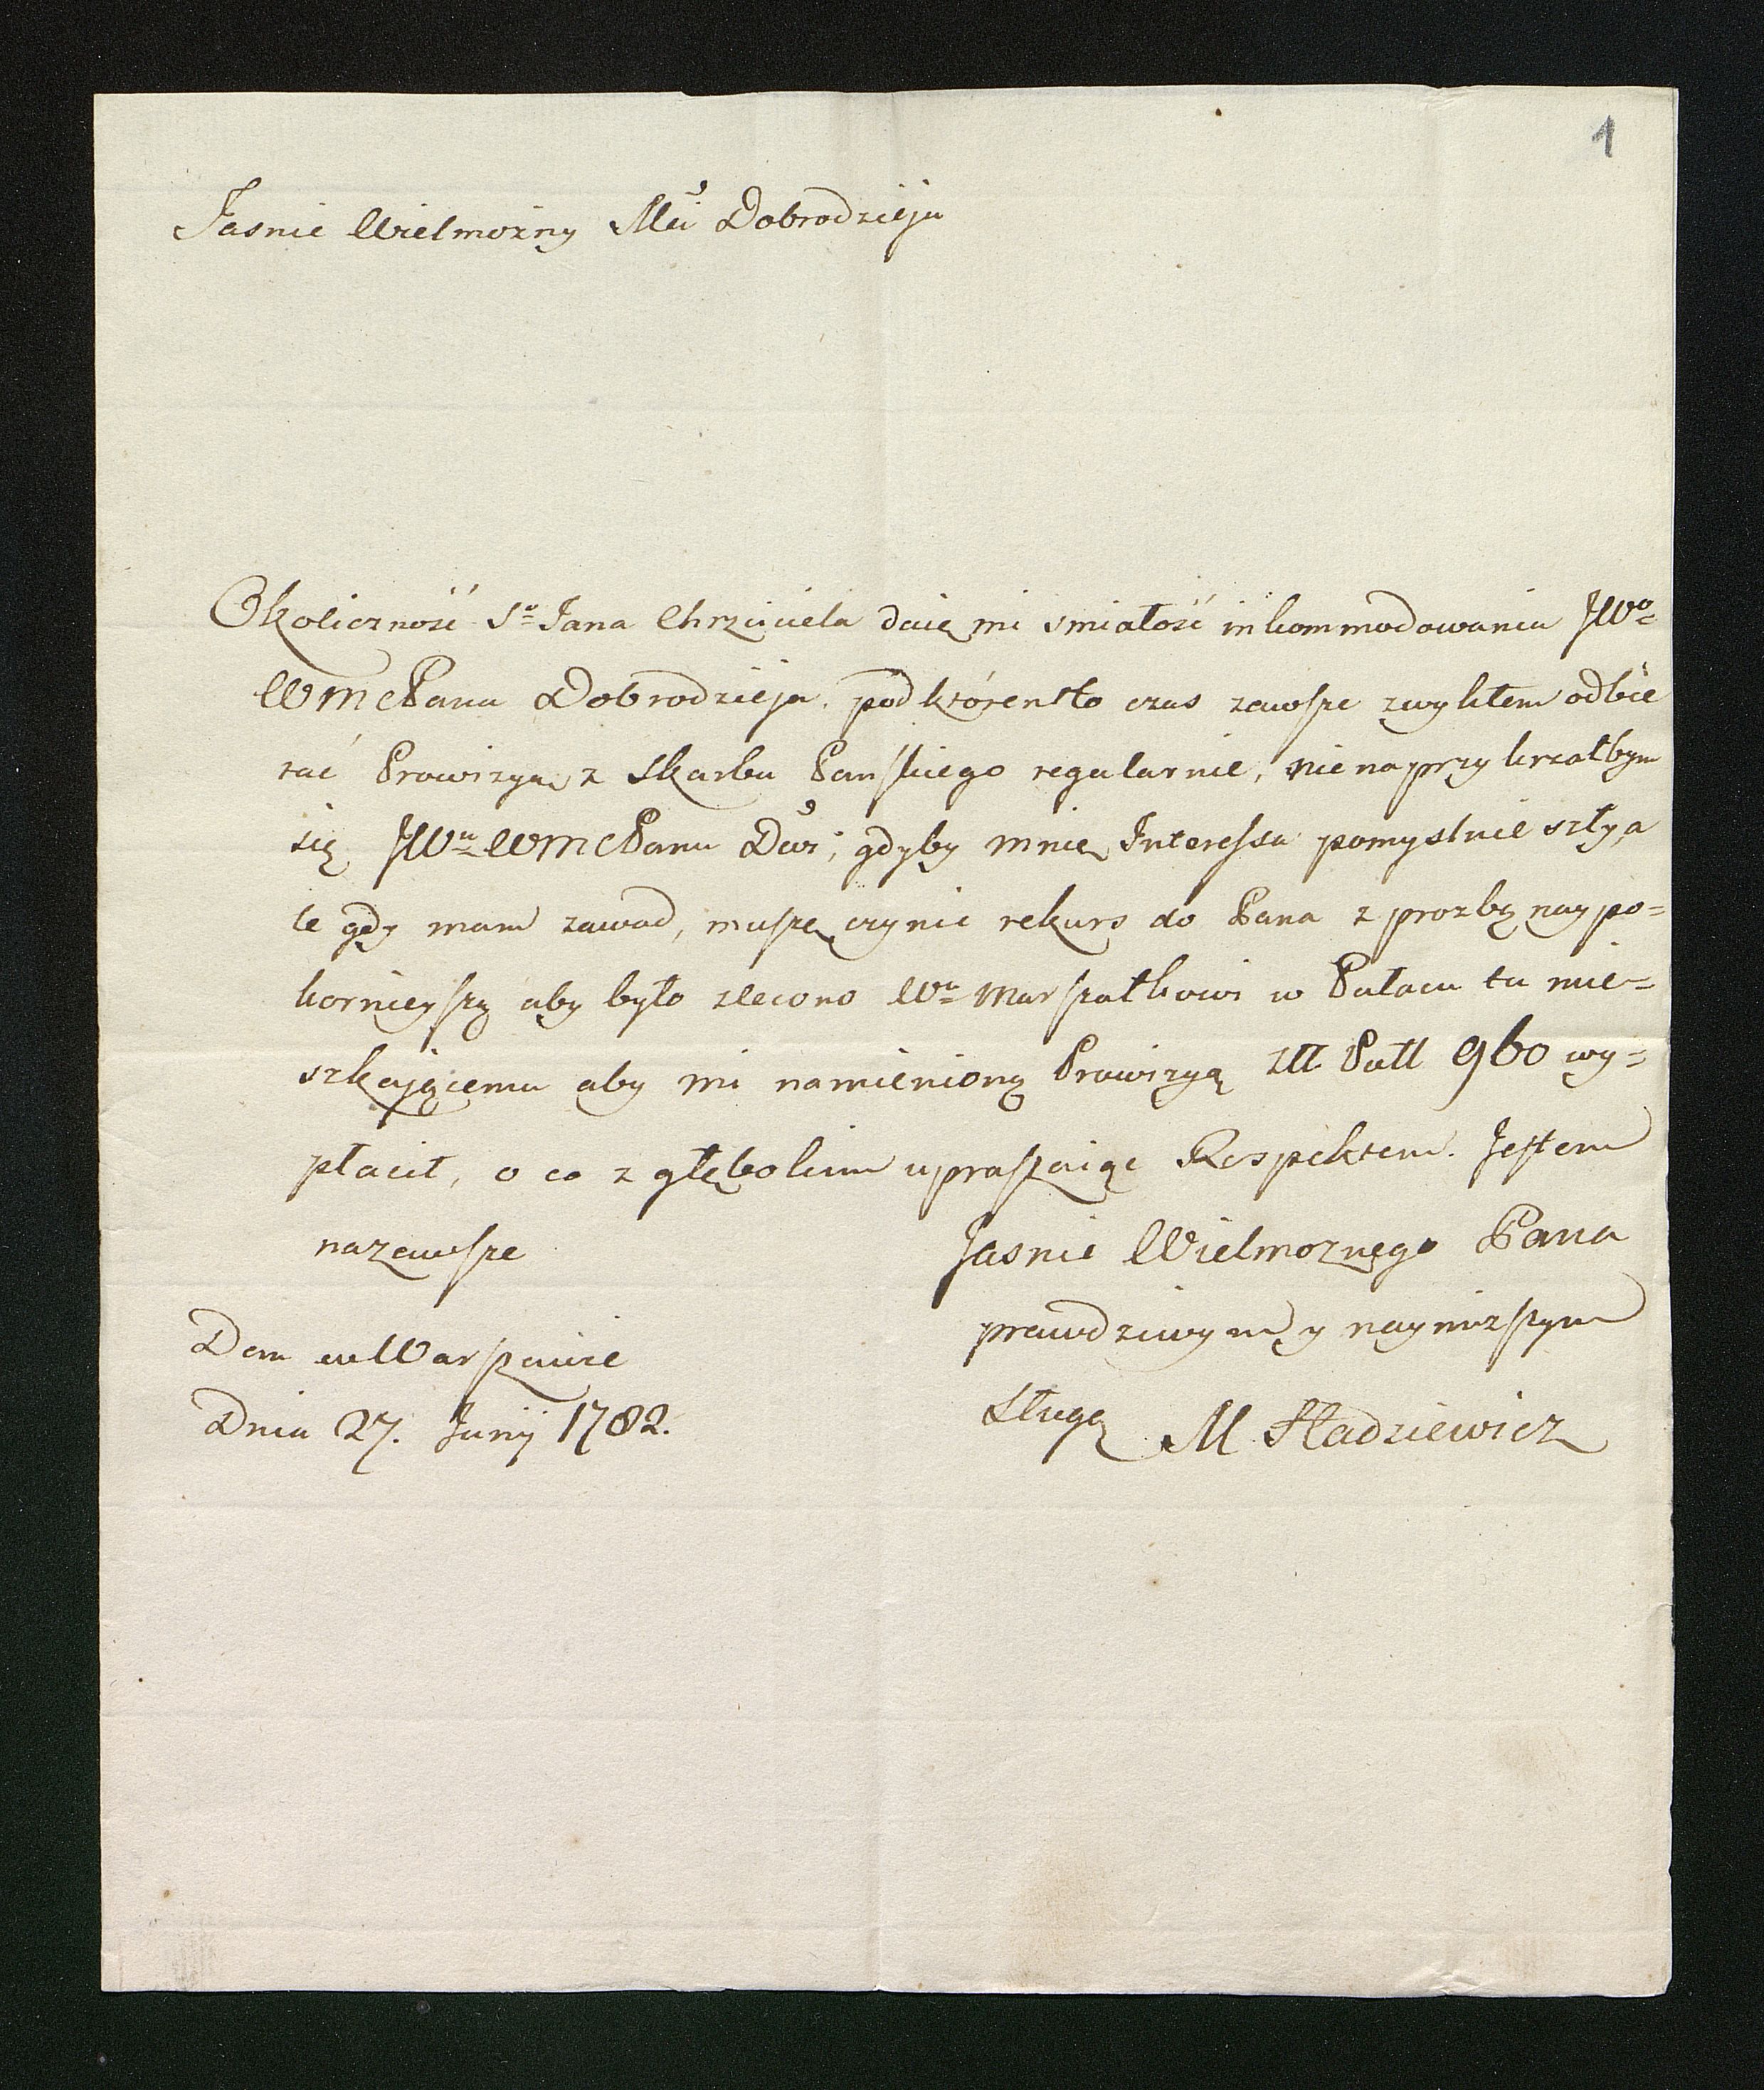 1
Jasnie Wielmożny Mci Dobrodzieju
Okoliczność So Jana Chrzciciela daię mi smiałość inkommodowania JWo
WMcPana Dobrodzieja, pod którento czas zawsze zwykłem odbie
rać Prowizyą z Skarbu Panskiego regularnie, nienaprzykrzałbym
się JWu WMcPanu Dowi, gdyby mnię Interessa pomyslnie szły, a
le gdy mam zawod, muszę czynic rekurs do Pana z prozbą naypo=
kornieyszą aby było zlecono Wu Marszałkowi w Pałacu tu mie=
szkaiącemu aby mi namienioną Prowizyą Złł Poll 960 wy=
płacił, o co z głębokim upraszaiąc Respektem. Jestem
nazawsze
Jasnie Wielmoznego Pana
prawdziwym y naynizszym
Dom w Warszawie
Sługą M Hadziewicz
Dnia 27. Junij 1782.